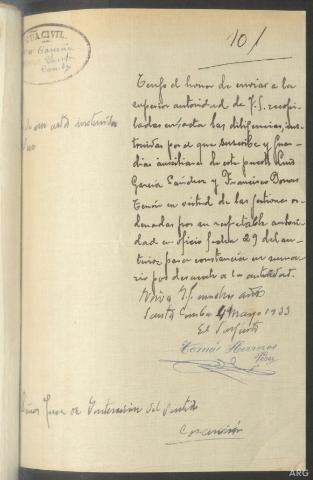 CIVIL.
101
Tengo el honor de enviar a la
superior autoridad de V.S. recopi-
ladas en acta las diligencias, ins-
truidas por el que suscribe y Guar-
dias auxiliares de este puesto Luis
García Sánchez y Francisco
en virtud de las gestiones or-
denadas por su respetable autori-
dad en oficio fecha 29 del an-
terior, para constancia en suma-
rio por desacato a la autoridad.
Viva V.S. muchos años
Santa Comba 4 Mayo 1933
El Sargento
Tomás Herreros
Pérez
Señor Juez de Instrucción del Partido
Corcubión
ARG